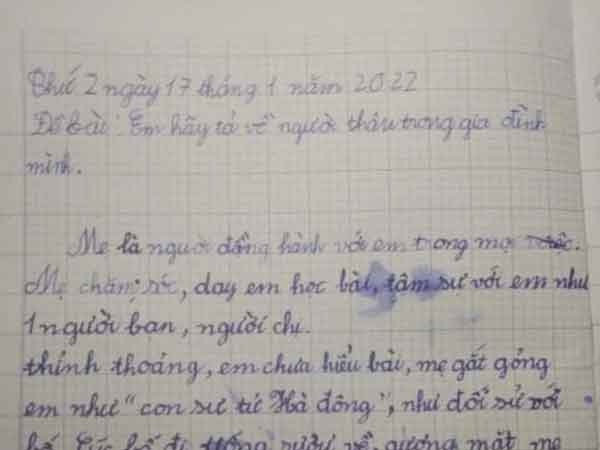 Thứ 2 ngày 17 tháng 1 năm 2022
Đề bài: Em hãy tả về người thân trong gia đình
mình.
Mẹ là người đồng hành với em trong mọi
Mẹ chăm sóc, dạy em học bài, tâm sự với em như
1 người bạn, người chị.
thỉnh thoảng, em chưa hiểu bài, mẹ gắt gỏng
em như "con sư tử Hà đông", như đối sử với
bố. Lúc bố đi uống rượu về, gương mặt mẹ